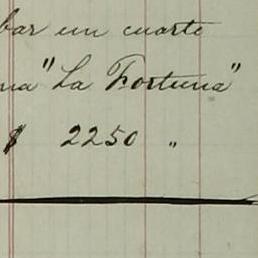 bar un cuarto
na "La Fortuna"
$ 2250 "